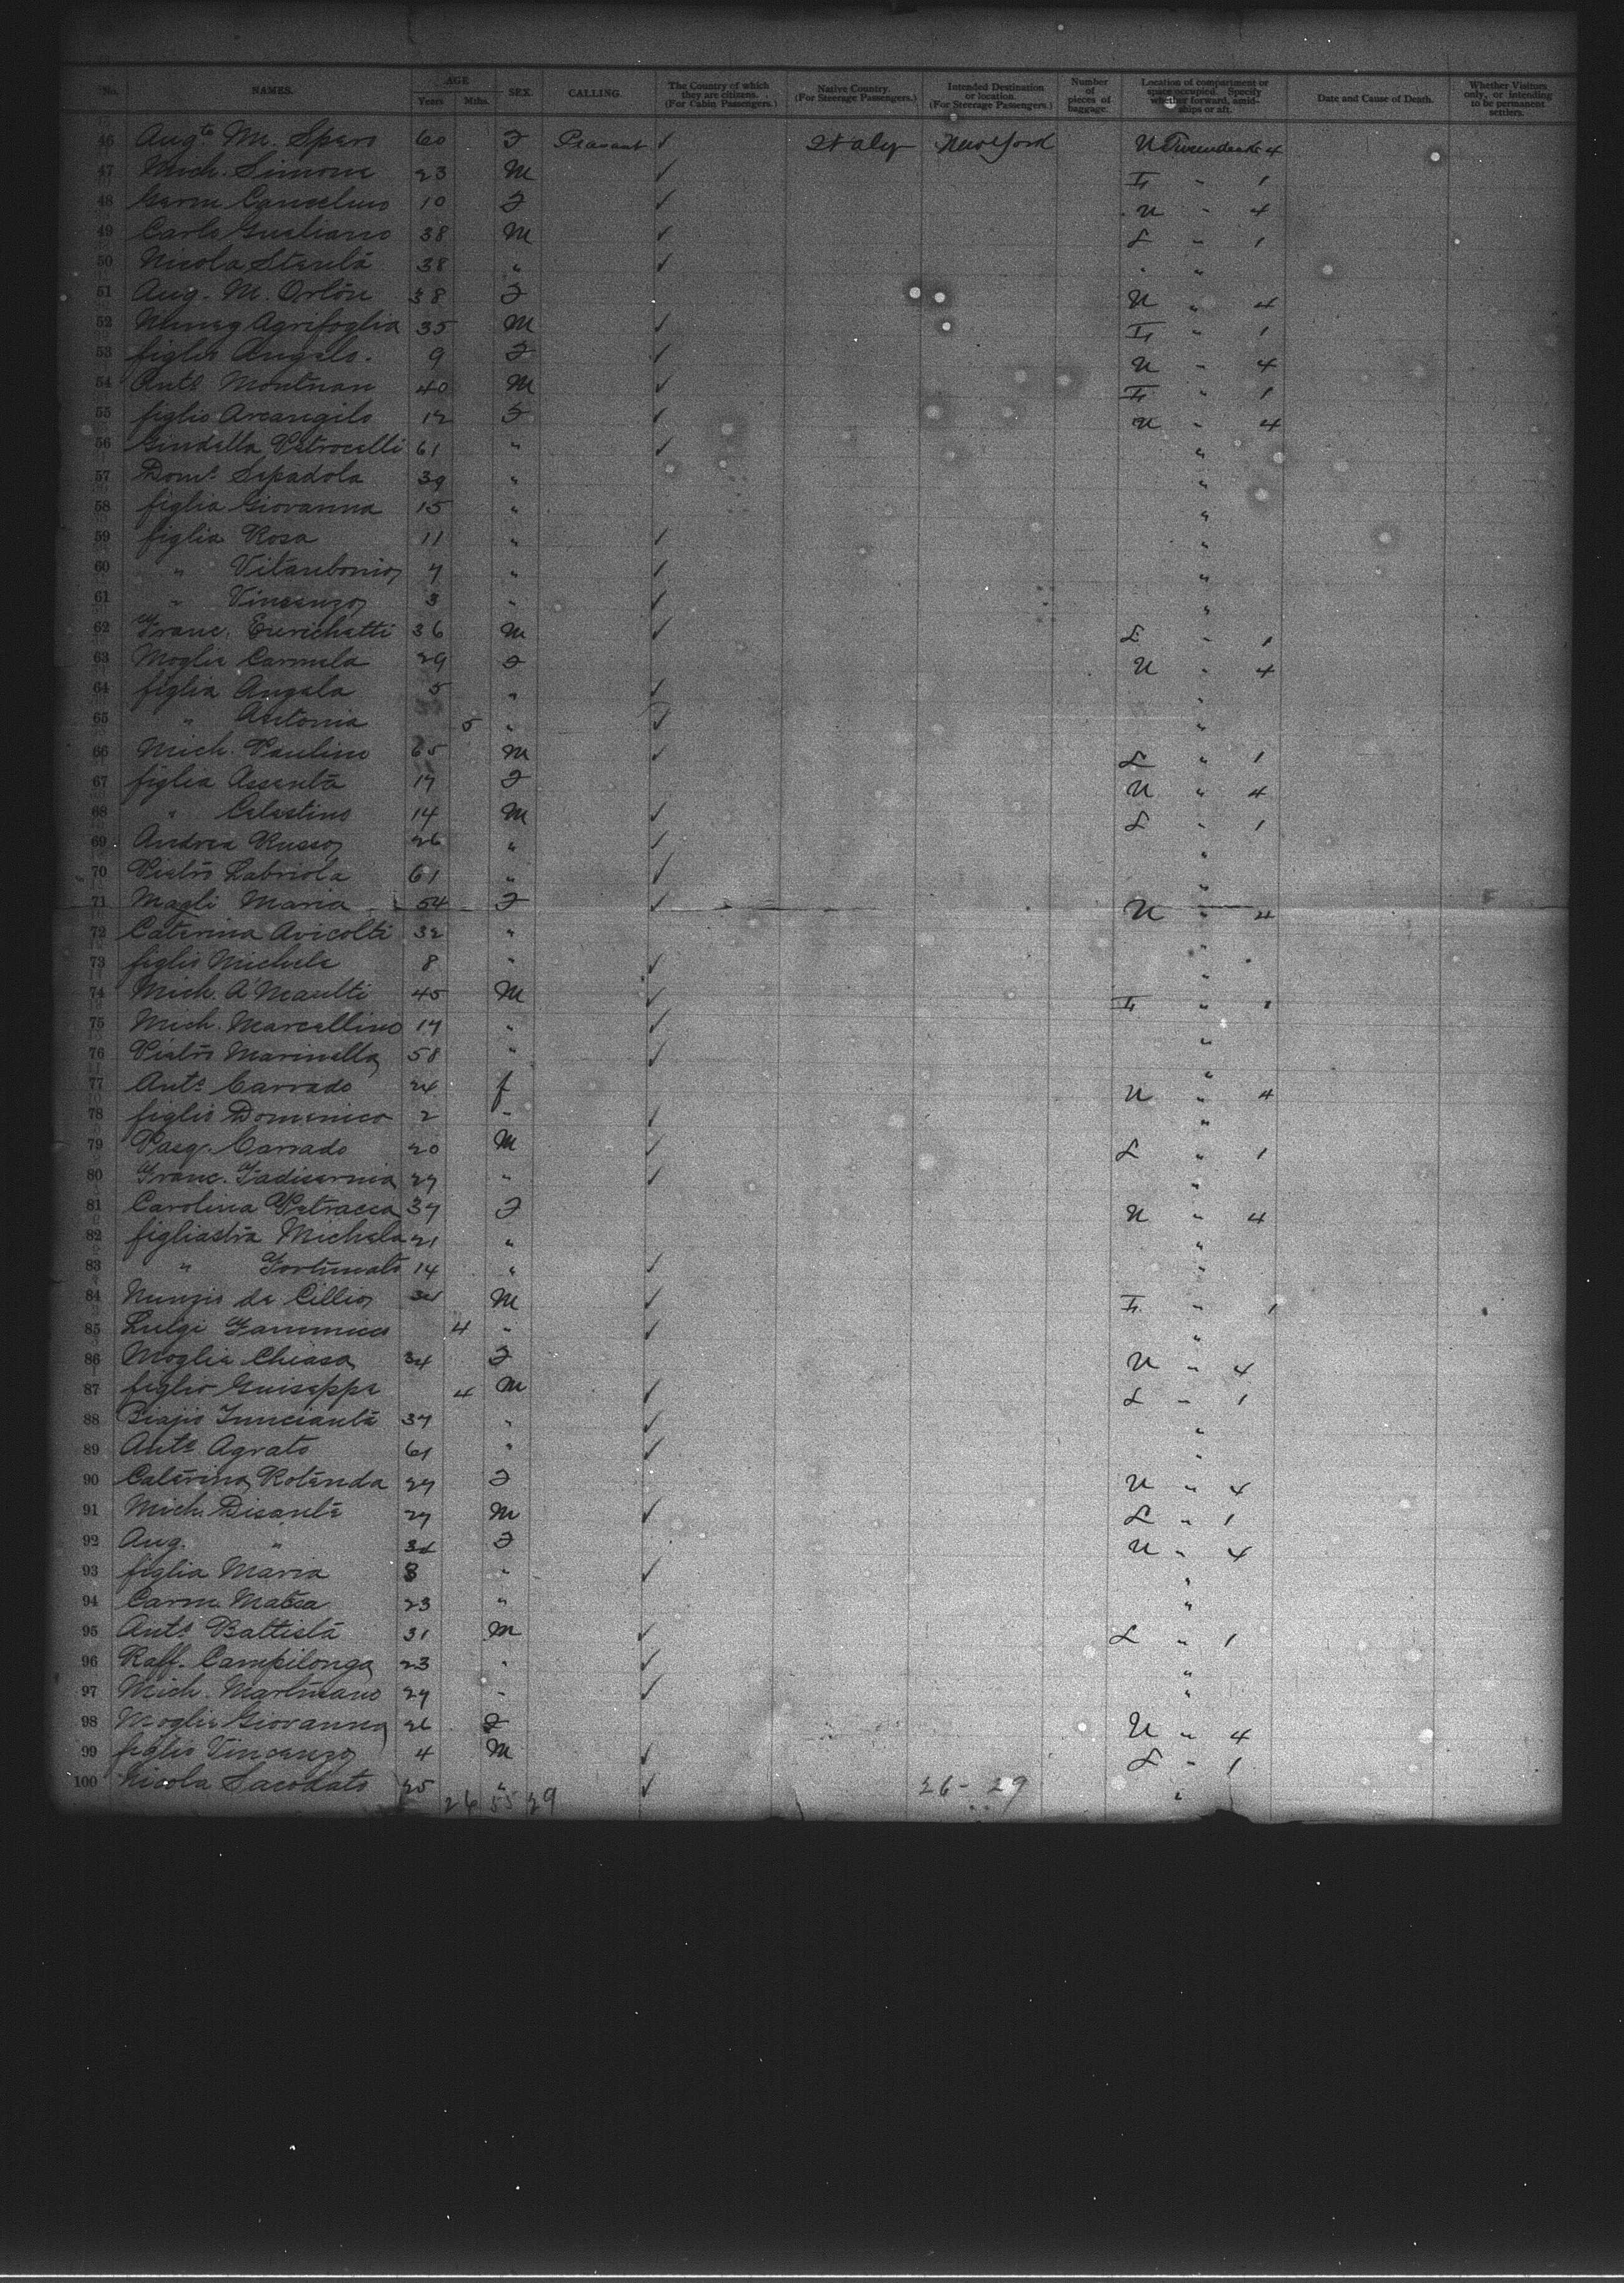 No. NAMES. AGE Years Mths. SEX. CALLING. The Country of which they are citizens. (For Cabin Passengers.) Native Country. (For Steerage Passengers.) Intended Destination or location. (For Steerage Passengers.) Number of pieces of baggage. Location of compartment or space occupied. Specify whether forward, amidships or aft. Date and Cause of Death. Whether Visitors only, or intending to be permanent settlers.
46 Aug^ta M. Spero 60 F Peasant ✓ Italy New York U Tweendeck 4
47 Mich. Simone 23 M ✓ L " 1
48 10 F ✓ U " 4
49 Carlo Giuliano 38 M ✓ L " 1
50 Nicola 38 " ✓ " "
51 Aug. M. 38 F U " 4
52 Agrifoglia 35 M ✓ L " 1
53 figlio Angelo. 9 F ✓ U " 4
54 Ant^o 40 M ✓ L " 1
55 figlio Arcangilo 12 F ✓ U " 4
56 Petrocelli 61 " ✓ "
57 Dom^a Sepadola 39 " "
58 figlia Giovanna 15 " "
59 figlia Rosa 11 " ✓ "
60 " 7 " ✓ "
61 " Vincenzo 3 " ✓ "
62 Franc. 36 M ✓ L " 1
63 Moglie Carmela 29 F U " 4
64 figlia Angela 5 " ✓ "
65 " Antonia 5 " ✓ "
66 Mich. Paulino 65 M ✓ L " 1
67 figlia Assunta 17 F U " 4
68 " Celestino 14 M ✓ L " 1
69 Andrea Russo 26 " ✓ "
70 Pietro Labriola 61 " ✓ "
71 Magli Maria 54 F ✓ U " 4
72 Caterina Avicolti 32 " "
73 figlio Michele 8 " ✓ "
74 Mich. 45 M ✓ L " 1
75 Mich. Marcellino 17 " ✓ "
76 Pietro Marinella 58 " ✓ "
77 Ant^a Carrado 24 f U " 4
78 figlio Domenico 2 " ✓ "
79 Pasq. Carrado 20 M ✓ L " 1
80 Franc. Fadisernia 27 " ✓ "
81 Carolina Petracca 37 F U " 4
82 figliastra Michela 21 " "
83 " Fortunato 14 " ✓ "
84 Nunzio de Cillio 34 M ✓ L " 1
85 Luigi 4 " ✓ "
86 Moglie Chiara 34 F U " 4
87 figlio Guiseppe 4 M ✓ L " 1
88 37 " ✓ "
89 Ant^o Agrato 61 " ✓ "
90 Caterina Rotenda 27 F U " 4
91 Mich. Disanta 27 M ✓ L " 1
92 Aug. " 32 F U " 4
93 figlia Maria 8 " ✓ "
94 Carm. Matea 23 " "
95 Ant^o Battista 31 M ✓ L " 1
96 Raff. Campilonga 23 " ✓ "
97 Mich. Martinano 27 " ✓ "
98 Moglie Giovanna 26 F U " 4
99 figlio Vincenzo 4 M ✓ L " 1
100 Nicola Sacodato 25 " ✓ "
26 55 29 26 - 29